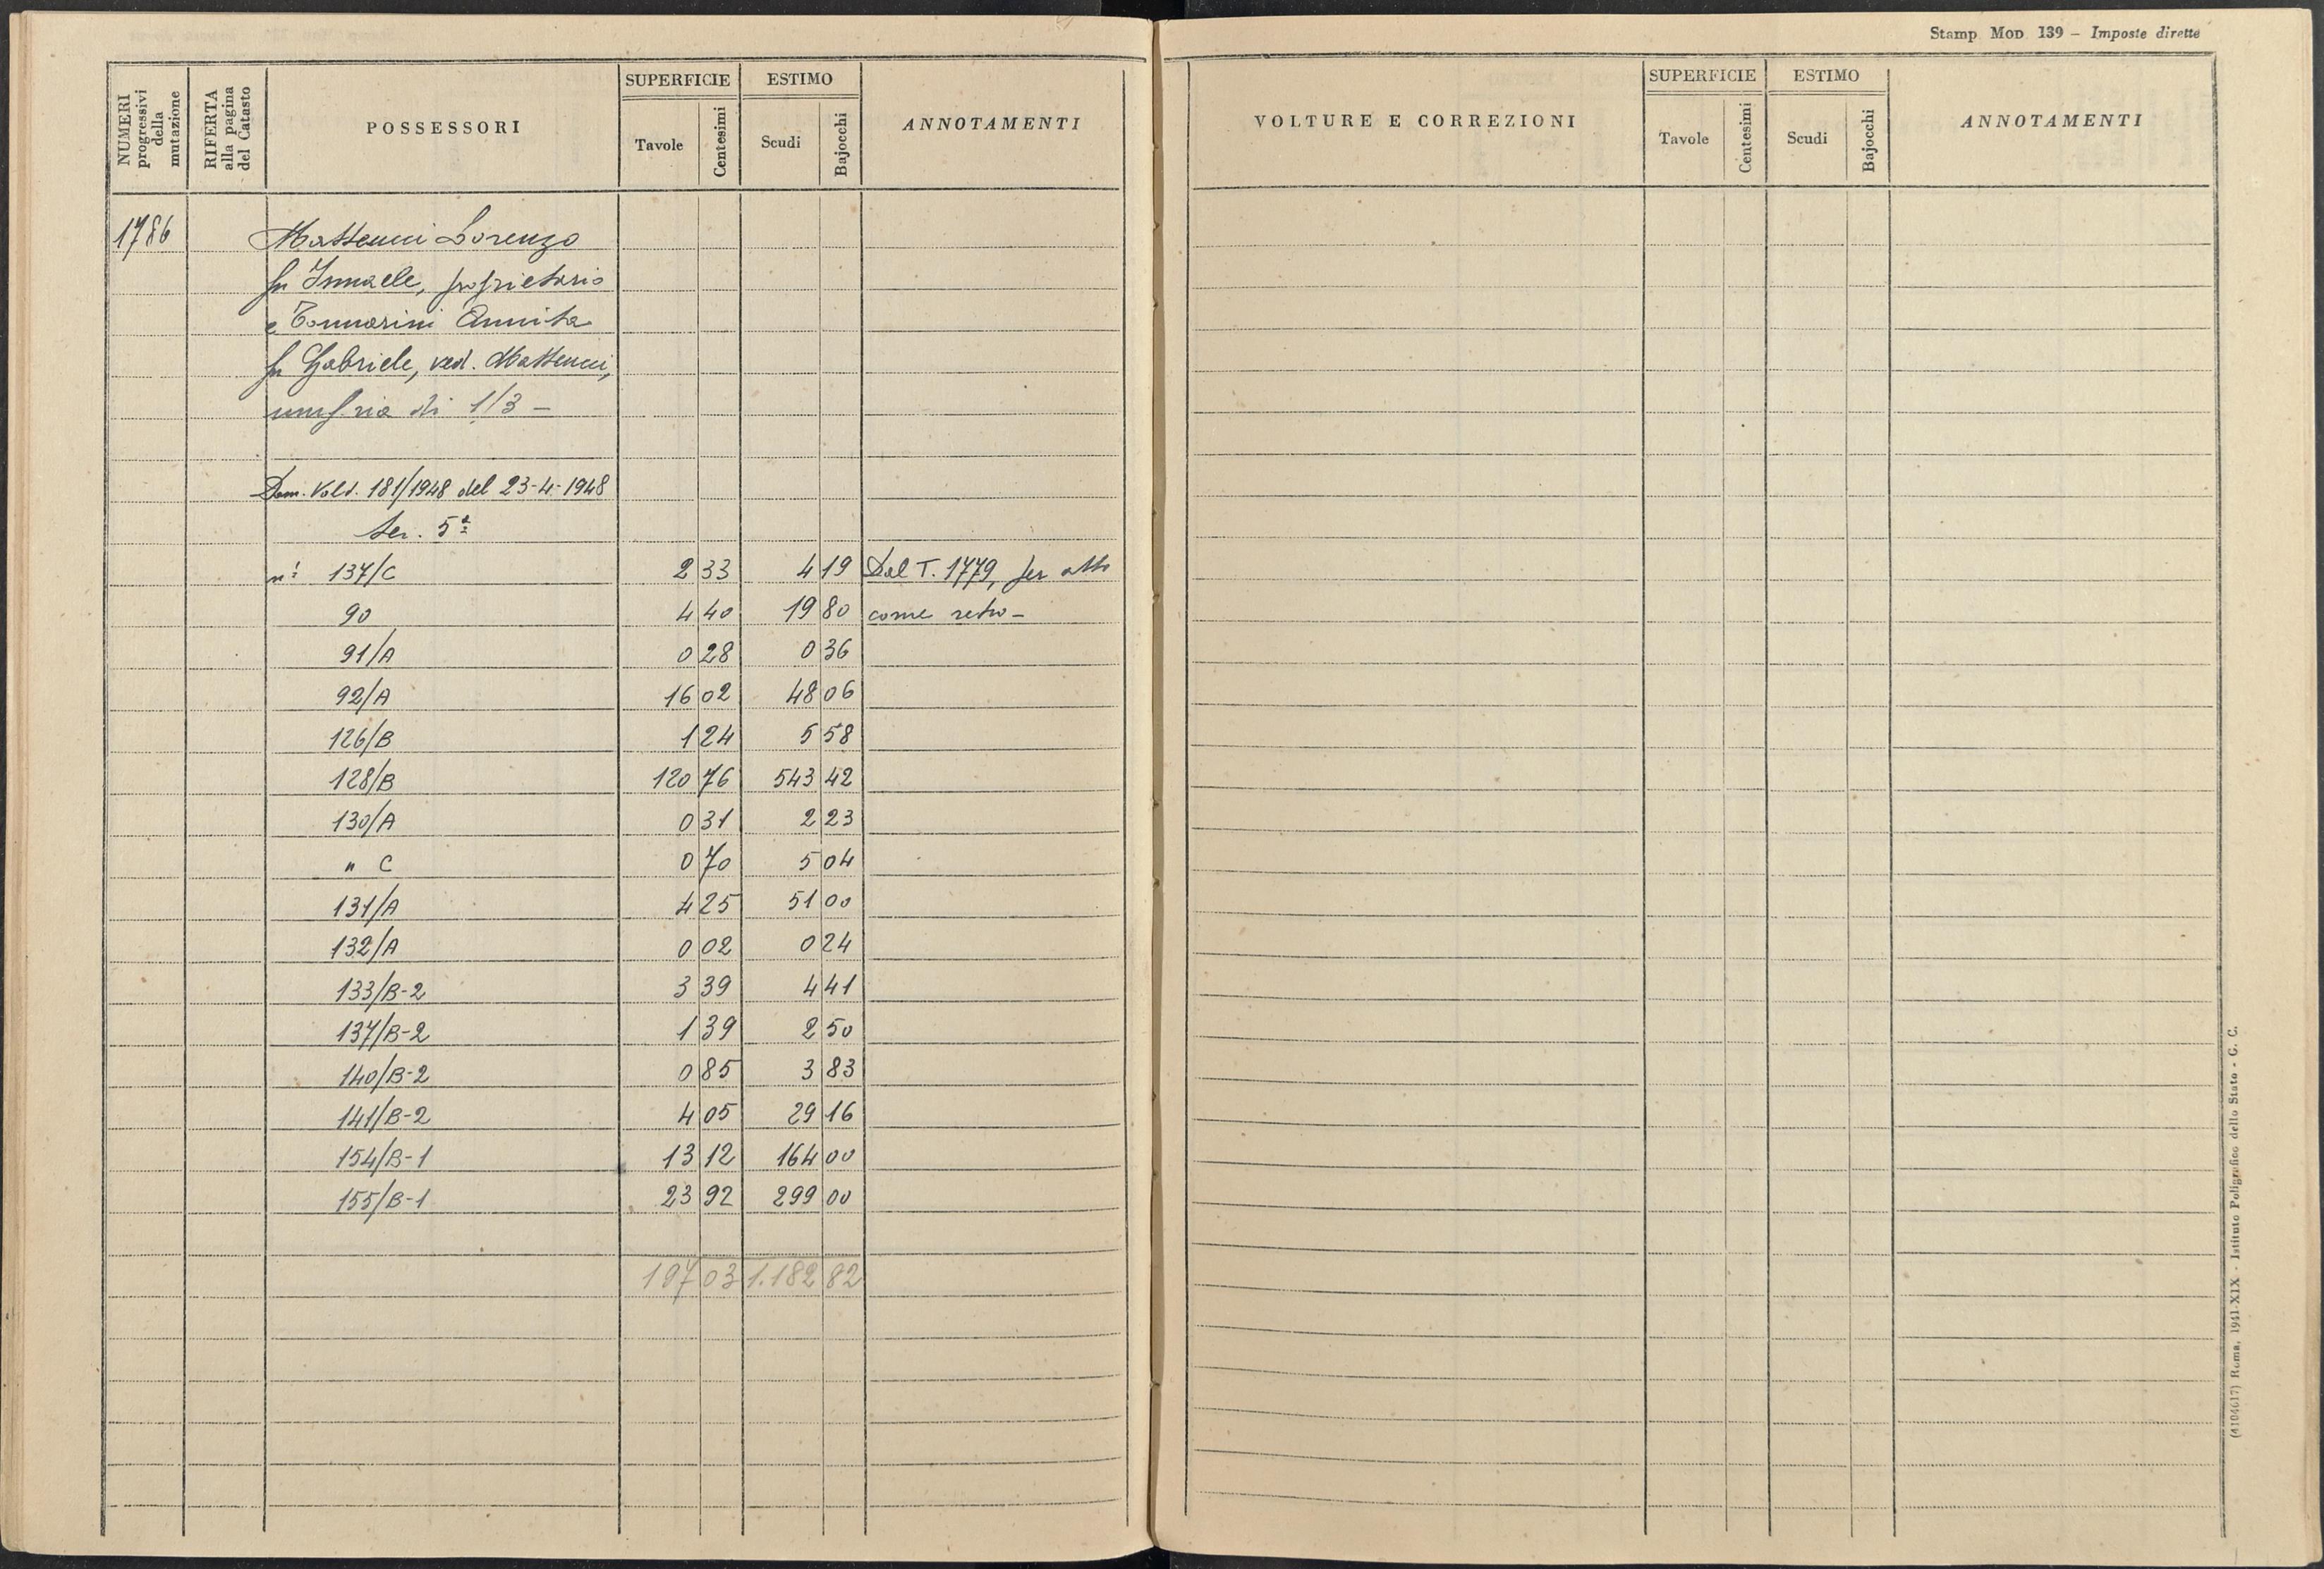 Stamp. Mod. 139 – Imposte dirette
NUMERI progressivi della mutazione
RIFERTA alla pagina del Catasto
POSSESSORI
SUPERFICIE
Tavole
Centesimi
ESTIMO
Scudi
Bajocchi
ANNOTAMENTI
VOLTURE E CORREZIONI
SUPERFICIE
Tavole
Centesimi
ESTIMO
Scudi
Bajocchi
ANNOTAMENTI
1786 Matteucci Lorenzo
fu Ismaele, proprietario
e Tonnarini Annita
fu Gabriele, ved. Matteucci,
di 1/3 –
Dom. Volt. 181/1948 del 23-4-1948
Ser. 5ª
nⁱ 137/C 2 33 4 19 Dal T. 1779, per atto
90 4 40 19 80 come retro –
91/A 0 28 0 36
92/A 16 02 48 06
126/B 1 24 5 58
128/B 120 76 543 42
130/A 0 31 2 23
" C 0 70 5 04
131/A 4 25 51 00
132/A 0 02 0 24
133/B-2 3 39 4 41
137/B-2 1 39 2 50
140/B-2 0 85 3 83
141/B-2 4 05 29 16
154/B-1 13 12 164 00
155/B-1 23 92 299 00
197 03 1.182 82
(4104617) Roma, 1941-XIX - Istituto Poligrafico dello Stato - G. C.